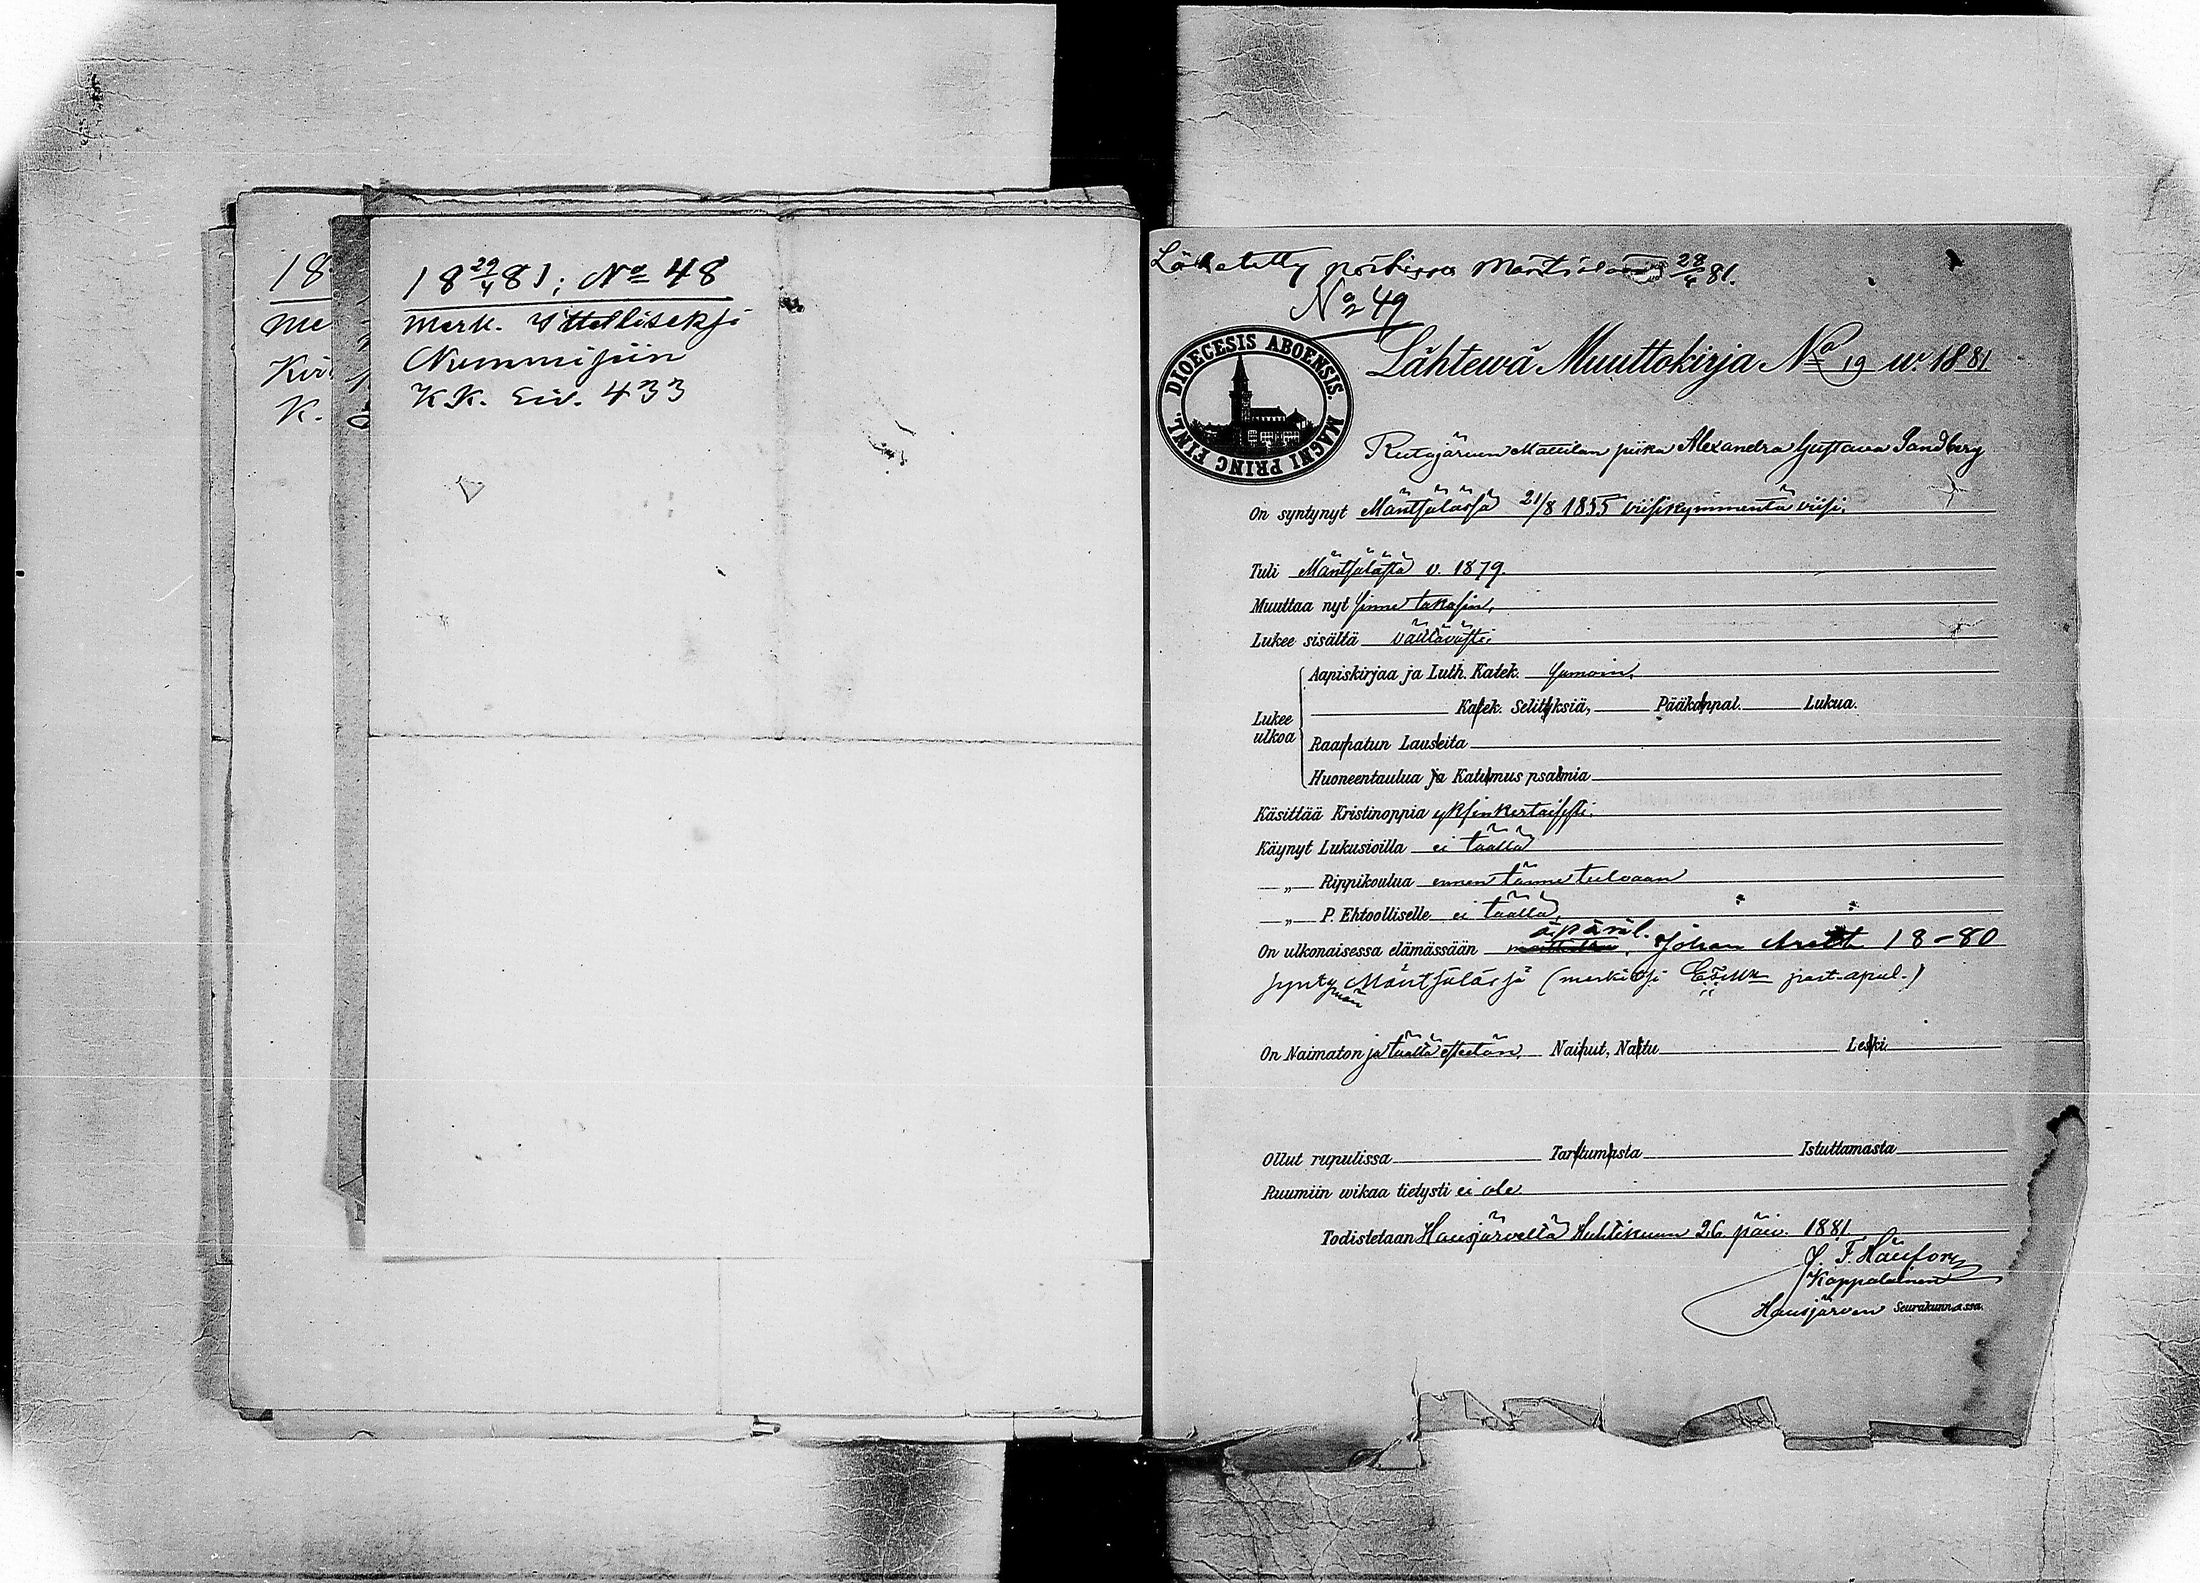 18 29/4 81; No 48
Merk. Ittelliseksi
Nummisiin
K.K. Siv. 433
18
Me
Kir
K.
Lähetetty postissa 28/4 81.
No 49
DIOECESIS ABOENSIS. MAGNI PRINC FINL.
Lähtewä Muuttokirja No 19 w. 1881
Mattilan piika Alexandra Gustava Sandberg
On syntynyt Mäntsälässä 21/8 1855 viisikymmentä viisi.
Tuli Mäntsälästä v. 1879.
Muuttaa nyt sinne takasin.
Lukee sisältä välttävästi.
Aapiskirjaa ja Luth. Katek. samoin.
Katek. Selityksiä, Pääkappal. Lukua.
Lukee ulkoa
Raamatun Lauseita
Huoneentaulua ja Katumus psalmia
Käsittää Kristinoppia yksinkertaisesti.
Käynyt Lukusioilla ei täällä
„ Rippikoulua ennen tänne tuloaan
„ P. Ehtoolliselle ei täällä.
On ulkonaisessa elämässään äpäräl. Johan 18-80
synt. Mäntsälässä (merkitsi past. apul.)
On Naimaton ja täältä esteetön. Naihut, Naitu Leski
Ollut rupulissa Tartumasta Istuttamasta
Ruumiin wikaa tietysti ei ole.
Todistetaan Hausjärvellä Huhtikuun 26 päiv. 1881
Kappalainen
Hausjärven Seurakunnassa.